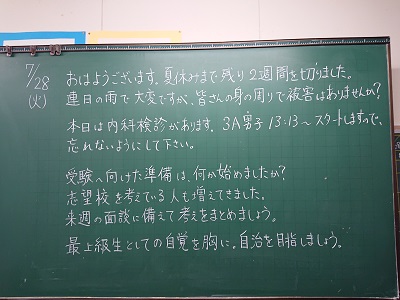 7/28
(火)
おはようございます。夏休みまで残り2週間を切りました。
連日の雨で大変ですが、皆さんの身の周りで被害はありませんか?
本日は内科検診があります。3A男子 13:13～スタートしますので、
忘れないようにして下さい。
受験へ向けた準備は、何か始めましたか?
志望校を考えている人も増えてきました。
来週の面談に備えて考えをまとめましょう。
最上級生としての自覚を胸に。自治を目指しましょう。